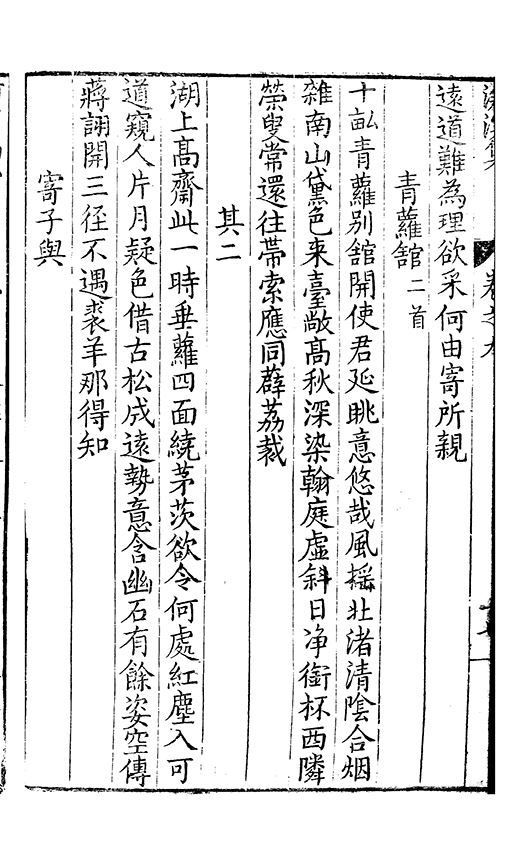 卷之九
遠道難為理欲采何由寄所親
青蘿舘二首
十畝青蘿别舘開使君延眺意悠哉風摇壮渚清隂合烟
雜南山黛色来臺敞髙秋深染翰庭虚斜日净銜杯西隣
榮叟常還往帶索應同薜荔裁
其二
湖上髙齋此一時垂蘿四面繞茅茨欲令何處紅塵入可
道窺人片月疑色借古松成遠勢意含幽石有餘姿空傳
蔣詡開三径不遇裘羊那得知
寄子與